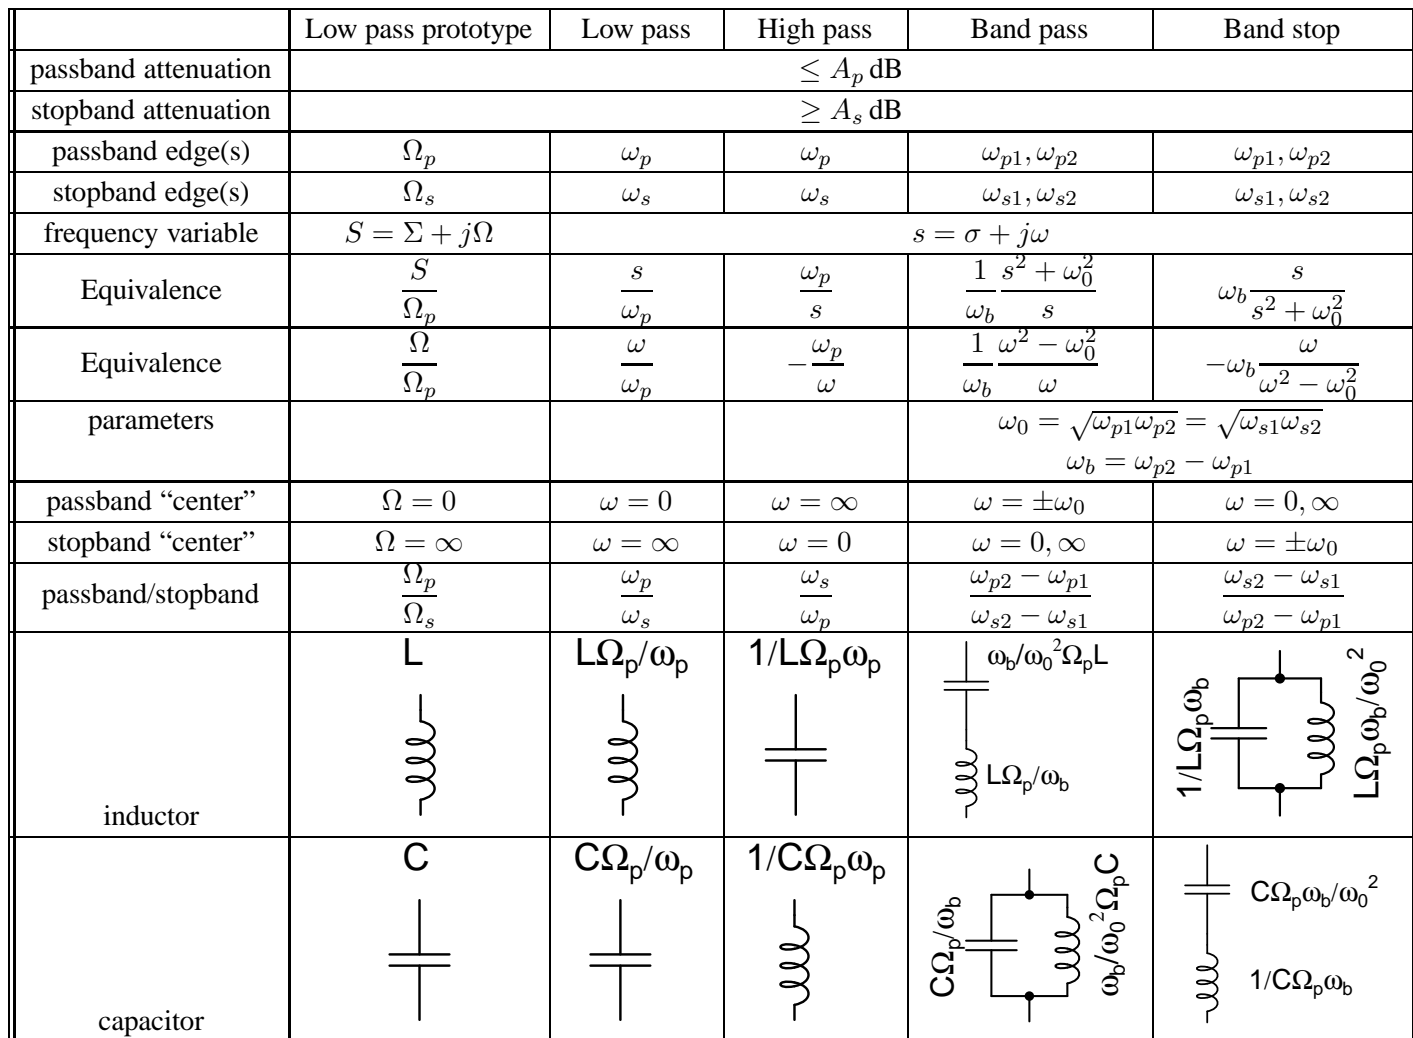 Low pass prototype Low pass High pass Band pass Band stop
passband attenuation ≤ A_p dB
stopband attenuation ≥ A_s dB
passband edge(s) Ω_p ω_p ω_p ω_{p1}, ω_{p2} ω_{p1}, ω_{p2}
stopband edge(s) Ω_s ω_s ω_s ω_{s1}, ω_{s2} ω_{s1}, ω_{s2}
frequency variable S = Σ + jΩ s = σ + jω
Equivalence \frac{S}{Ω_p} \frac{s}{ω_p} \frac{ω_p}{s} \frac{1}{ω_b} \frac{s^2 + ω_0^2}{s} ω_b \frac{s}{s^2 + ω_0^2}
Equivalence \frac{Ω}{Ω_p} \frac{ω}{ω_p} -\frac{ω_p}{ω} \frac{1}{ω_b} \frac{ω^2 - ω_0^2}{ω} -ω_b \frac{ω}{ω^2 - ω_0^2}
parameters ω_0 = \sqrt{ω_{p1}ω_{p2}} = \sqrt{ω_{s1}ω_{s2}}
ω_b = ω_{p2} - ω_{p1}
passband “center” Ω = 0 ω = 0 ω = ∞ ω = ±ω_0 ω = 0, ∞
stopband “center” Ω = ∞ ω = ∞ ω = 0 ω = 0, ∞ ω = ±ω_0
passband/stopband \frac{Ω_p}{Ω_s} \frac{ω_p}{ω_s} \frac{ω_s}{ω_p} \frac{ω_{p2} - ω_{p1}}{ω_{s2} - ω_{s1}} \frac{ω_{s2} - ω_{s1}}{ω_{p2} - ω_{p1}}
inductor
L
LΩ_p/ω_p
1/LΩ_pω_p
ω_b/ω_0^2Ω_pL
LΩ_p/ω_b
1/LΩ_pω_b
LΩ_pω_b/ω_0^2
capacitor
C
CΩ_p/ω_p
1/CΩ_pω_p
CΩ_p/ω_b
ω_b/ω_0^2Ω_pC
CΩ_pω_b/ω_0^2
1/CΩ_pω_b